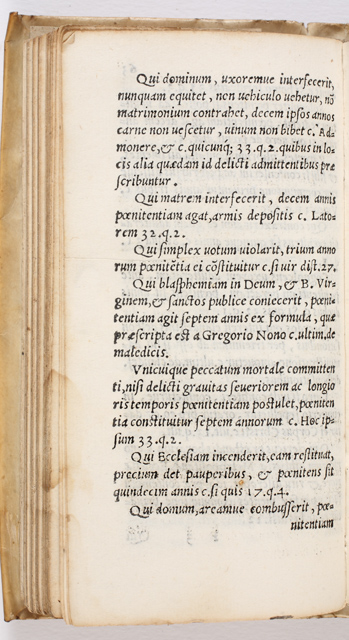 Qui dominum, uxoremue interfecerit,
nunquam equitet, non uehiculo uehetur, nō
matrimonium contrahet, decem ipsos annos
carne non uescetur, uinum non bibet c. Ad-
monere, & c. quicunq; 33. q. 2. quibus in lo-
cis alia quædam id delicti admittentibus præ
scribuntur.
Qui matrem interfecerit, decem annis
pœnitentiam agat, armis depositis c. Lato-
rem 32. q. 2.
Qui simplex uotum uiolarit, trium anno
rum pœnitētia ei cōstituitur c. si uir dist. 27.
Qui blasphemiam in Deum, & B. Vir-
ginem, & sanctos publice coniecerit, pœni-
tentiam agit septem annis ex formula, quæ
præscripta est a Gregorio Nono c. ultim. de
maledicis.
Vnicuique peccatum mortale committen
ti, nisi delicti grauitas seueriorem ac longio
ris temporis pœnitentiam postulet, pœniten
tia constituitur septem annorum c. Hoc ip-
sum 33. q. 2.
Qui Ecclesiam incenderit, eam restituat,
precium det pauperibus, & pœnitens sit
quindecim annis c. si quis 17. q. 4.
Qui domum, areamue combusserit, pœ-
nitentiam